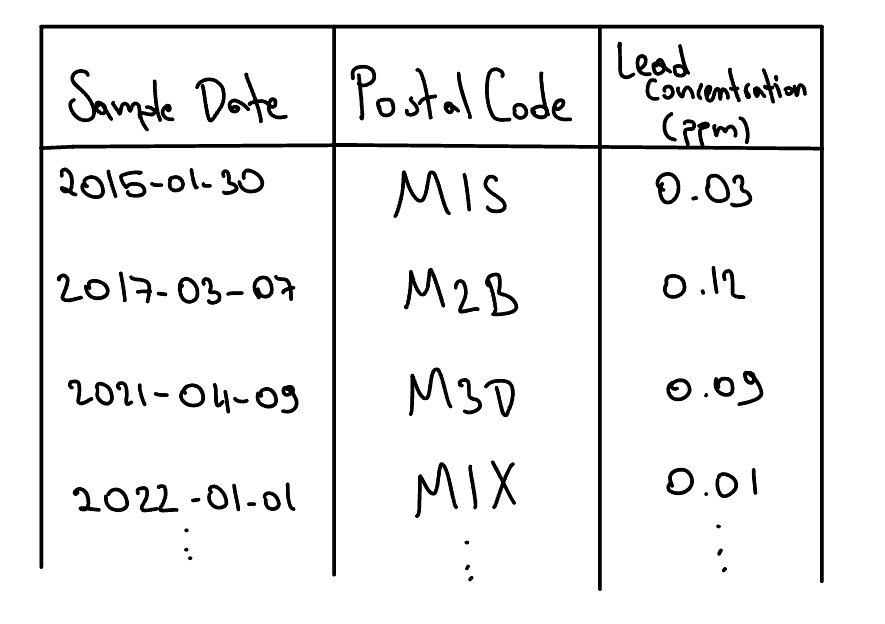 Sample Date Postal Code Lead Concentration (ppm)
2015-01-30 M1S 0.03
2017-03-07 M2B 0.12
2021-04-09 M3D 0.09
2022-01-01 M1X 0.01
⋮ ⋮ ⋮